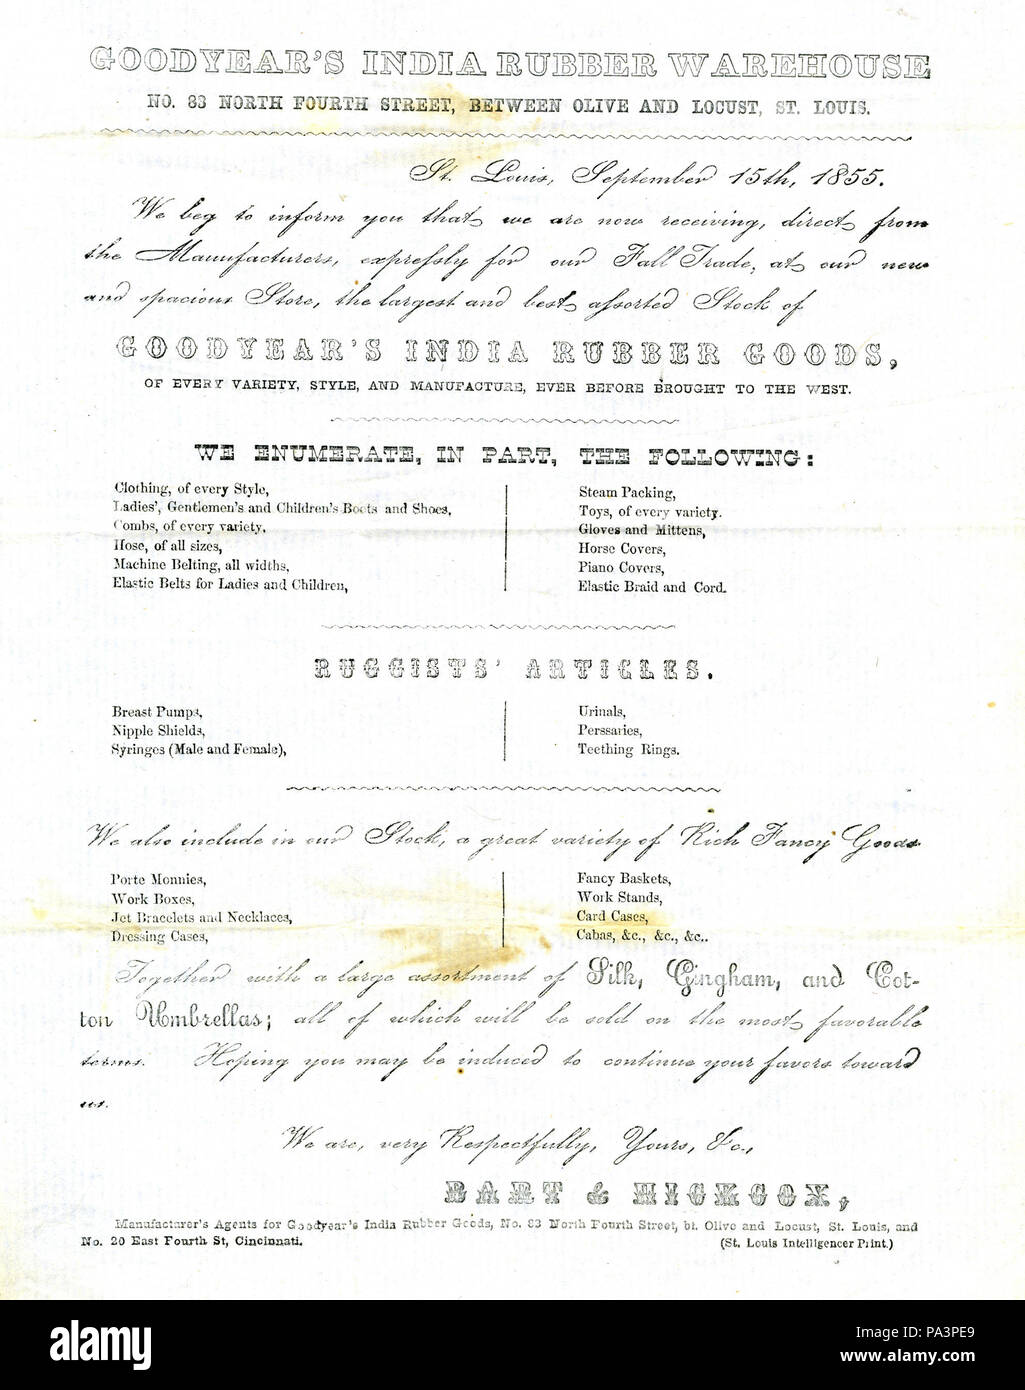 GOODYEAR'S INDIA RUBBER WAREHOUSE
NO. 83 NORTH FOURTH STREET, BETWEEN OLIVE AND LOCUST, ST. LOUIS.
St. Louis, September 15th, 1855.
We beg to inform you that we are now receiving, direct from
the Manufacturers, expressly for our Fall Trade, at our new
and spacious Store, the largest and best assorted Stock of
GOODYEAR'S INDIA RUBBER GOODS,
OF EVERY VARIETY, STYLE, AND MANUFACTURE, EVER BEFORE BROUGHT TO THE WEST.
WE ENUMERATE, IN PART, THE FOLLOWING:
Clothing, of every Style,
Ladies', Gentlemen's and Children's Boots and Shoes,
Combs, of every variety,
Hose, of all sizes,
Machine Belting, all widths,
Elastic Belts for Ladies and Children,
Steam Packing,
Toys, of every variety.
Gloves and Mittens,
Horse Covers,
Piano Covers,
Elastic Braid and Cord.
RUGGISTS' ARTICLES.
Breast Pumps,
Nipple Shields,
Syringes (Male and Female),
Urinals,
Perssaries,
Teething Rings.
We also include in our Stock, a great variety of Rich Fancy Goods
Porte Monnies,
Work Boxes,
Jet Bracelets and Necklaces,
Dressing Cases,
Fancy Baskets,
Work Stands,
Card Cases,
Cabas, &c., &c., &c..
Together with a large assortment of Silk, Gingham, and Cot-
ton Umbrellas; all of which will be sold on the most favorable
terms. Hoping you may be induced to continue your favors toward
us.
We are, very Respectfully, Yours, &c.,
BART & HICKCOX,
Manufacturer's Agents for Goodyear's India Rubber Goods, No. 83 North Fourth Street, bt. Olive and Locust, St. Louis, and
No. 20 East Fourth St, Cincinnati.
(St. Louis Intelligencer Print.)
alamy
Image ID: PA3PE9
www.alamy.com